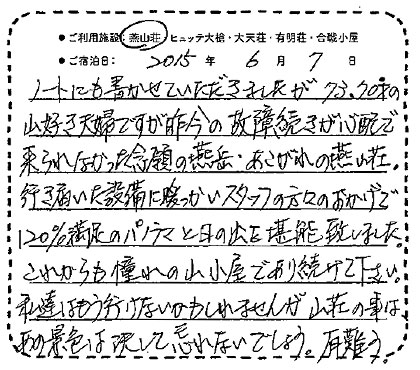 ●ご利用施設：燕山荘・ヒュッテ大槍・大天荘・有明荘・合戦小屋
●ご宿泊日： 2015 年 6 月 7 日
ノートにも書かせていただきましたが73.70才の
山好き夫婦ですが昨今の故障続きが心配で
来られなかった念願の燕岳・あこがれの燕山荘。
行き届いた設備に暖っかいスタッフの方々のおかげで
120%満足のパノラマと日の出を堪能致しました。
これからも憧れの山小屋であり続けて下さい。
私達はもう行けないかもしれませんが山荘の事は、
あの景色は決して忘れないでしょう。有難う。